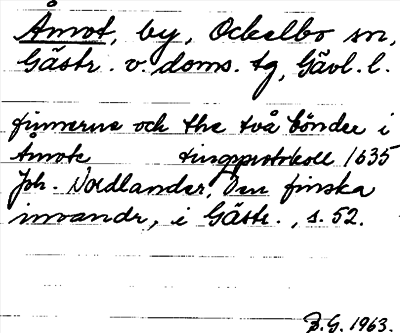 Åmot, by, Ockelbo sn,
Gästr. v. doms. tg, Gävl. l.
finnerne och the två bönder i
Åmote tingsprotokoll 1635
Joh. Nordlander, Den finska
invandr., i Gästr., s. 52.
B.G. 1963.